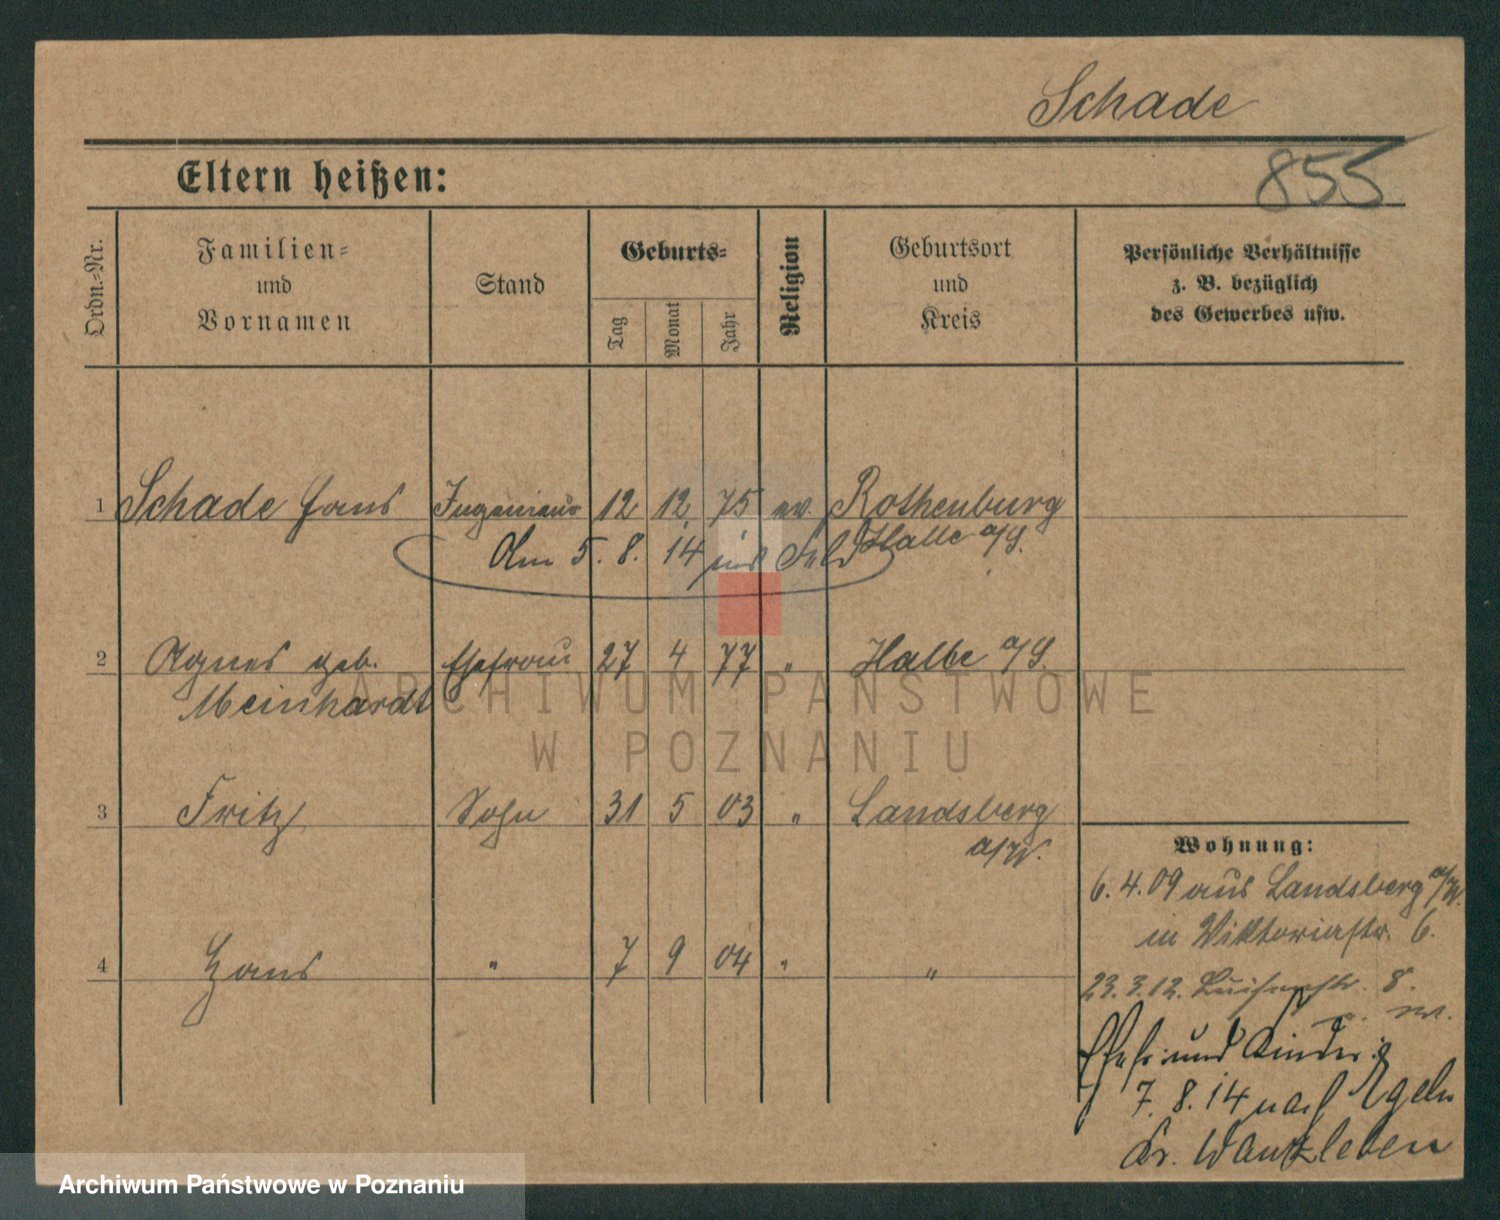 Schade
855
Eltern heißen:
Ordn.-Nr.
Familien-
und
Vornamen
Stand
Geburts-
Tag
Monat
Jahr
Religion
Geburtsort
und
Kreis
Persönliche Verhältnisse
z. B. bezüglich
des Gewerbes usw.
1 Schade Hans Ingenieur 12 12 75 ev. Rothenburg
Halle a/S.
Am 5. 8. 14 ins Feld
2 Agnes geb. Ehefrau 27 4 77 " Halle a/S.
Meinhardt
3 Fritz Sohn 31 5 03 " Landsberg
a/W.
4 Hans " 7 9 04 " "
Wohnung:
6. 4. 09 aus Landsberg a/W.
in Viktoriastr. 6.
23. 3. 12. Luisenstr. 8.
Ehefr. und Kinder
7. 8. 14 nach Egeln
Kr. Wanzleben
ARCHIWUM PAŃSTWOWE
W POZNANIU
Archiwum Państwowe w Poznaniu